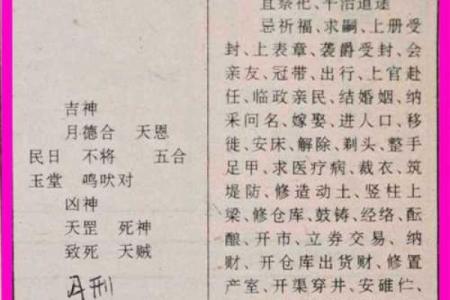 吉神
月德合 天恩
民日 不将 五合
玉堂 鸣吠对
凶神
天罡 死神
致死 天贼
月刑
宜祭祀、平治道途
忌祈福、求嗣、上册受
封、上表章、袭爵受封、会
亲友、冠带、出行、上官赴
任、临政亲民、结婚姻、纳
采问名、嫁娶、进人口、移
徙、安床、解除、剃头、整手
足甲、求医疗病、裁衣、筑
堤防、修造动土、竖柱上
梁、修仓库、鼓铸、经络、酝
酿、开市、立券交易、纳
财、开仓库出货财、修置
产室、开渠穿井、安碓仁、